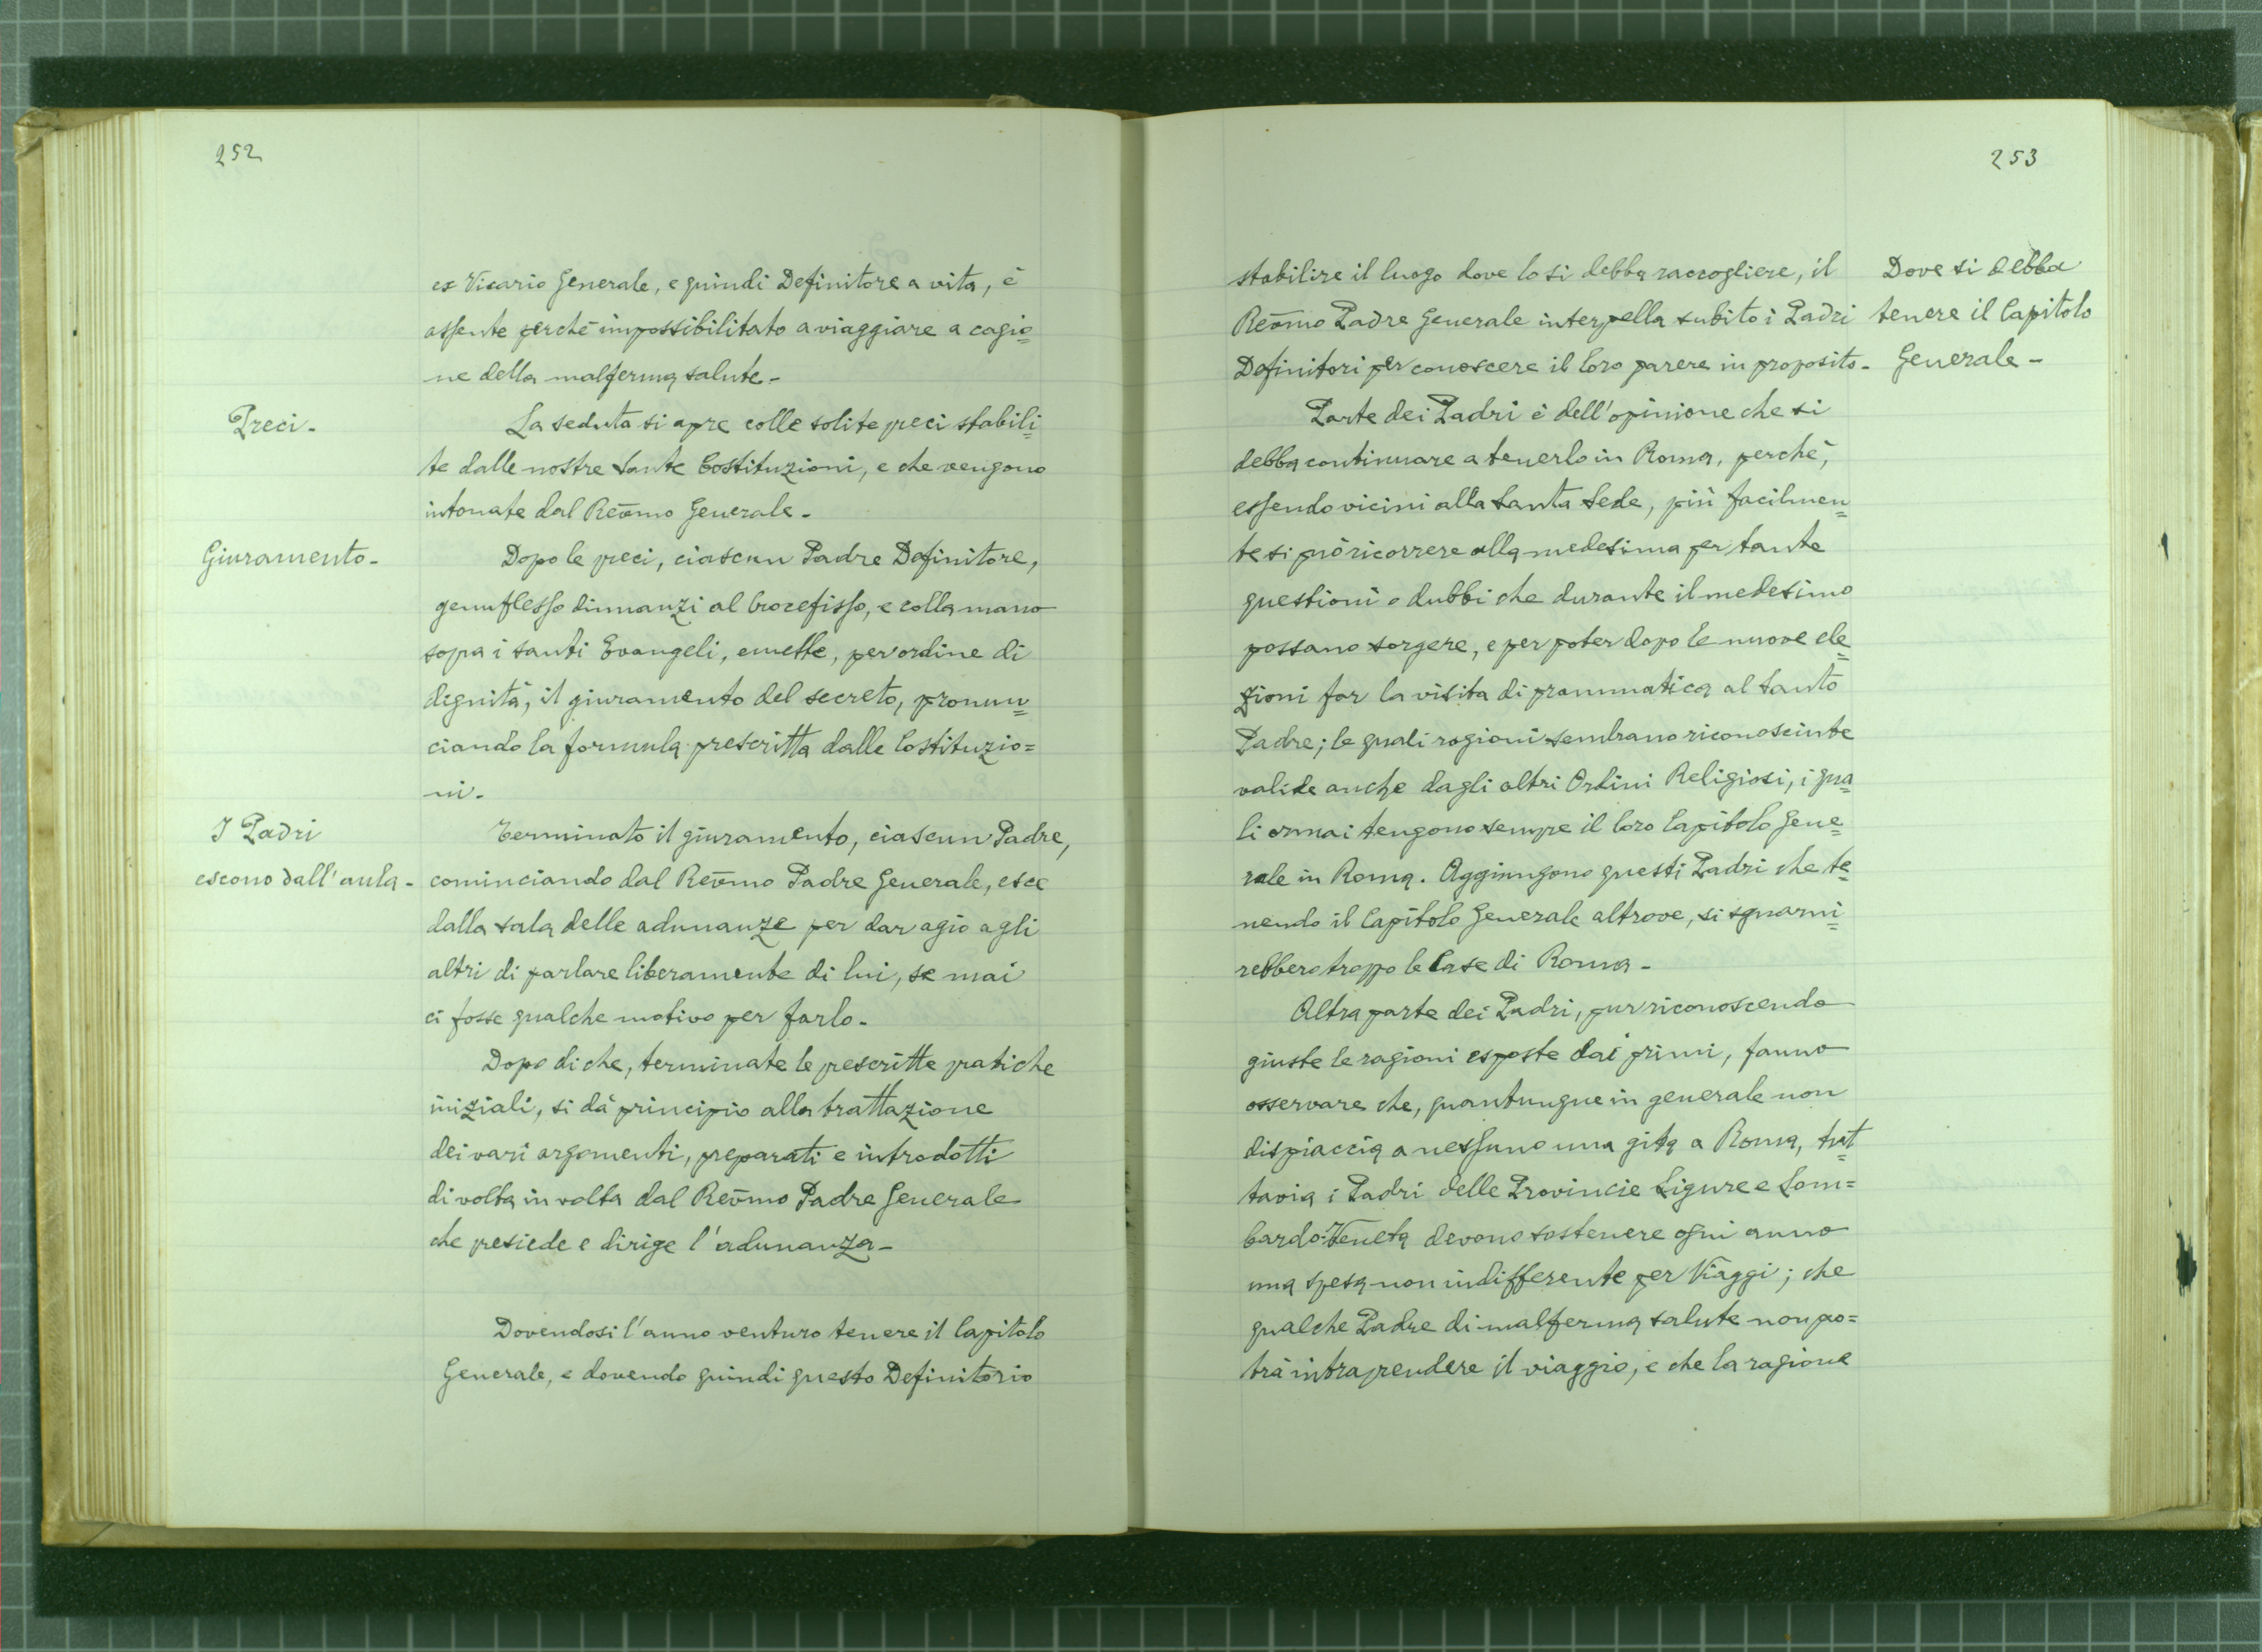 252
ex Vicario Generale, e quindi Definitore a vita, è
assente perchè impossibilitato a viaggiare a cagio=
ne della malferma salute-
Preci-
La seduta si apre colle solite preci stabili=
te dalle nostre Sante Costituzioni, e che vengono
intonate dal Revmo Generale-
Giuramento-
Dopo le preci, ciascun Padre Definitore,
genuflesso dinnanzi al Crocefisso, e colla mano
sopra i santi Evangeli, emette, per ordine di
dignità, il giuramento del secreto, pronun=
ciando la formula prescritta dalle Costituzio=
ni-
I Padri
escono dall'aula-
Terminato il giuramento, ciascun Padre,
cominciando dal Revmo Padre Generale, esce
dalla sala delle adunanze per dar agio agli
altri di parlare liberamente di lui, se mai
ci fosse qualche motivo per farlo-
Dopo di che, terminate le prescritte pratiche
iniziali, si dà principio alla trattazione
dei vari argomenti, preparati e introdotti
di volta in volta dal Revmo Padre Generale
che presiede e dirige l'adunanza-
Dovendosi l'anno venturo tenere il Capitolo
Generale, e dovendo quindi questo Definitorio
253
Dove si debba
tenere il Capitolo
Generale-
stabilire il luogo dove lo si debba raccogliere, il
Revmo Padre Generale interpella subito i Padri
Definitori per conoscere il loro parere in proposito-
Parte dei Padri è dell'opinione che si
debba continuare a tenerlo in Roma, perchè,
essendo vicini alla Santa Sede, più facilmen=
te si può ricorrere alla medesima per tante
questioni o dubbi che durante il medesimo
possano sorgere, e per poter dopo le nuove ele=
zioni far la visita di prammatica al Santo
Padre; le quali ragioni sembrano riconosciute
valide anche dagli altri Ordini Religiosi, i qua=
li ormai tengono sempre il loro Capitolo Gene=
rale in Roma. Aggiungono questi Padri che te=
nendo il Capitolo Generale altrove, si sguarni=
rebbero troppo le Case di Roma-
Altra parte dei Padri, pur riconoscendo
giuste le ragioni esposte dai primi, fanno
osservare che, quantunque in generale non
dispiaccia a nessuno una gita a Roma, tut=
tavia i Padri delle Provincie Ligure e Lom=
bardo-Veneta devono sostenere ogni anno
una spesa non indifferente per Viaggi; che
qualche Padre di malferma salute non po=
trà intraprendere il viaggio, e che la ragione